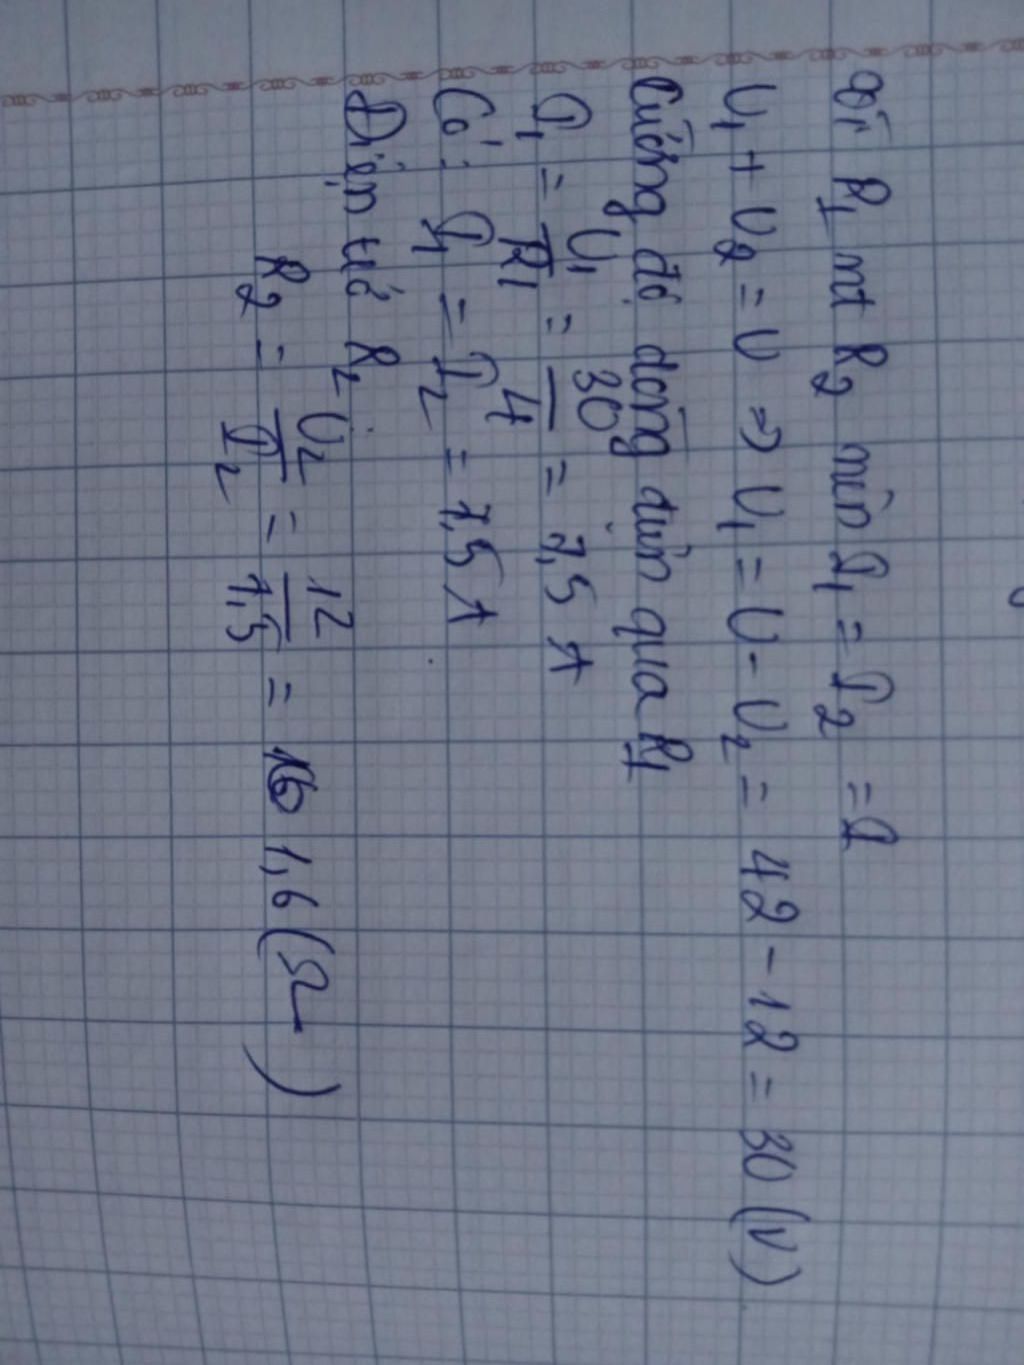 Vì R1 nt R2 nên I1 = I2 = I
U1 + U2 = U => U1 = U - U2 = 42 - 12 = 30 (V)
Cường độ dòng điện qua R1
I1 = U1/R1 = 30/4 = 7,5 A
Có: I1 = I2 = 7,5 A
Điện trở R2
R2 = U2/I2 = 12/7,5 = 1,6 (Ω)